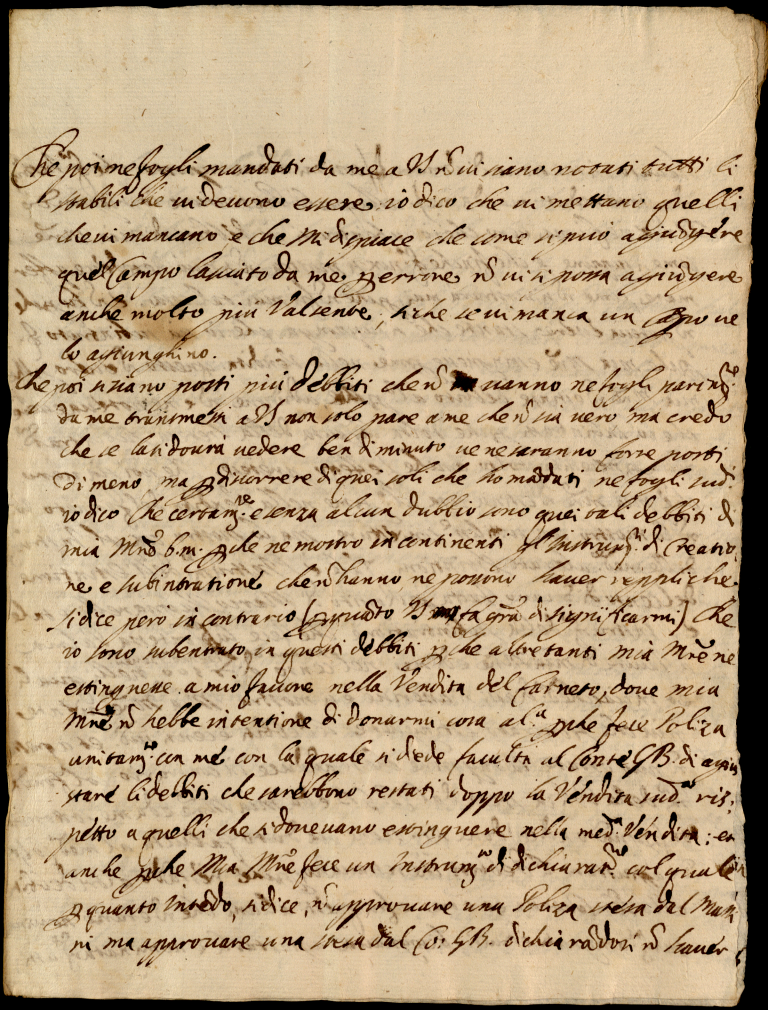 Che poi ne fogli mandati da me a VS nõ vi siano notati tutti li
stabili che vi devono essere, io dico che vi mettano quelli
che vi mancano e che mi dispiace che come si può agiungere
quel Campo lasciato da me per errore nõ vi si possa agiungere
anche molto più Valsente, si che se vi manca un Campo ve
lo agiunghino.
Che poi si siano posti più debbiti che nõ vanno ne fogli parimte
da me trasmessi a VS non solo pare a me che nõ sia vero ma credo
che se la si dovrà vedere ben di minuto ve ne saranno forse posti
di meno, ma p discorrere di quei soli che ho mãdati ne fogli sud.i
io dico che certamte e senza alcun dubbio sono quei tali debbiti di
mia Mrẽ b.m. pche ne mostro in continenti gl'Instrumti di Creatio
ne e subintratione che nõ hanno, ne possono haver reppliche.
si dice però in contrario (p quãto VS fa gra di significarmi) Che
io sono subentrato in questi debbiti pche altretanti mia Mrẽ ne
estinguesse a mio favore nella Vendita del Carneto, dove mia
Mrẽ nõ hebbe intentione di donarmi cosa al.a pche fece Poliza
unitamte con me con la quale si diede facultà al Conte GB. di agiu
stare li debbiti che sarebbono restati doppo la Vendita sud.a ris-
petto a quelli che si dovevano estinguere nella med.a Vendita; et
anche pche Mia Mrẽ fece un Instrumto di dichiarat.ne col quale
p quanto intẽdo, si dice, nõ approvare una Poliza stesa dal Mari
ni ma approvare una stesa dal Co: GB. dichiarãdosi nõ haver